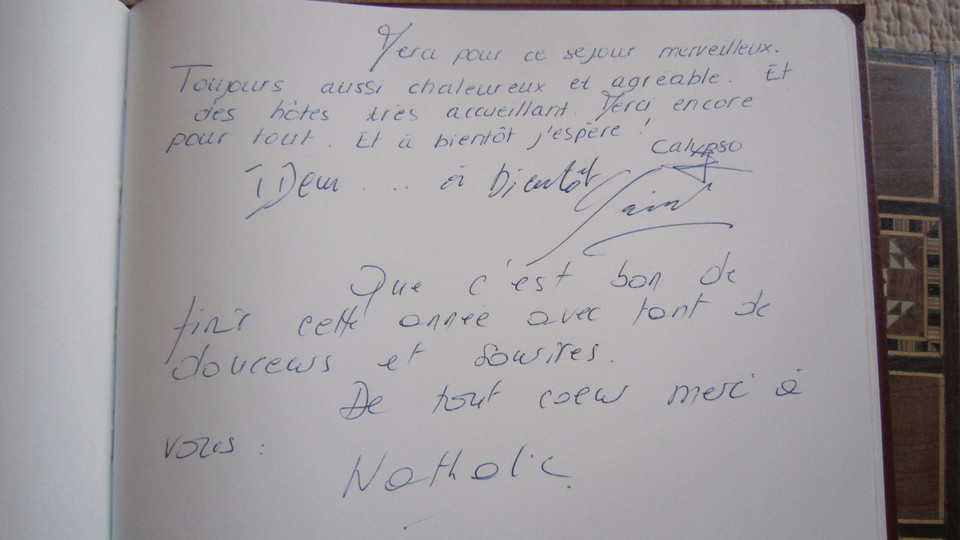 Merci pour ce sejour merveilleux.
Toujours aussi chaleureux et agréable. Et
des hôtes très accueillant. Merci encore
pour tout. Et à bientôt j'espère !
Calypso
IDem .... à bientôt
Que c'est bon de
finir cette année avec tant de
douceurs et sourires.
De tout coeur merci à
vous :
Nathalie